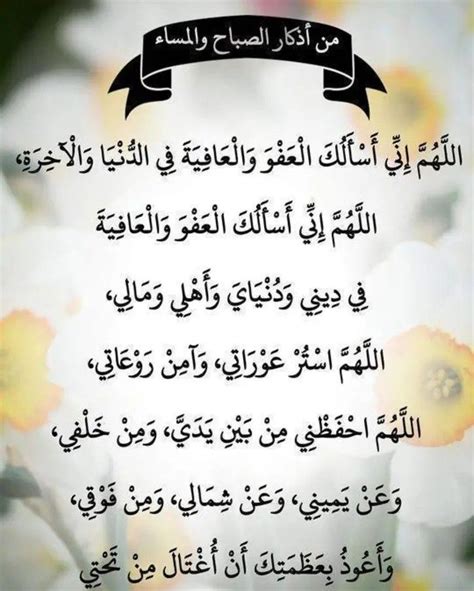 من أذكار الصباح والمساء
اللَّهُمَّ إِنِّي أَسْأَلُكَ الْعَفْوَ وَالْعَافِيَةَ فِي الدُّنْيَا وَالْآخِرَةِ،
اللَّهُمَّ إِنِّي أَسْأَلُكَ الْعَفْوَ وَالْعَافِيَةَ
فِي دِينِي وَدُنْيَايَ وَأَهْلِي وَمَالِي،
اللَّهُمَّ اسْتُرْ عَوْرَاتِي، وَآمِنْ رَوْعَاتِي،
اللَّهُمَّ احْفَظْنِي مِنْ بَيْنِ يَدَيَّ، وَمِنْ خَلْفِي،
وَعَنْ يَمِينِي، وَعَنْ شِمَالِي، وَمِنْ فَوْقِي،
وَأَعُوذُ بِعَظَمَتِكَ أَنْ أُغْتَالَ مِنْ تَحْتِي